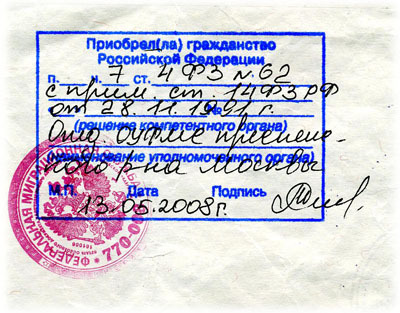 Приобрел(ла) гражданство
Российской Федерации
п. н. 7 ст. 4 ФЗ N 62
с прим. ст. 14 ФЗ РФ
от 28.11.1991 г.
(решение компетентного органа)
Отд. ОУФМС
(наименование уполномоченного органа)
р-на Москвы
М.П. Дата Подпись
13.05.2008г.
ФЕДЕРАЛЬНАЯ МИГРАЦИОННАЯ
770-00